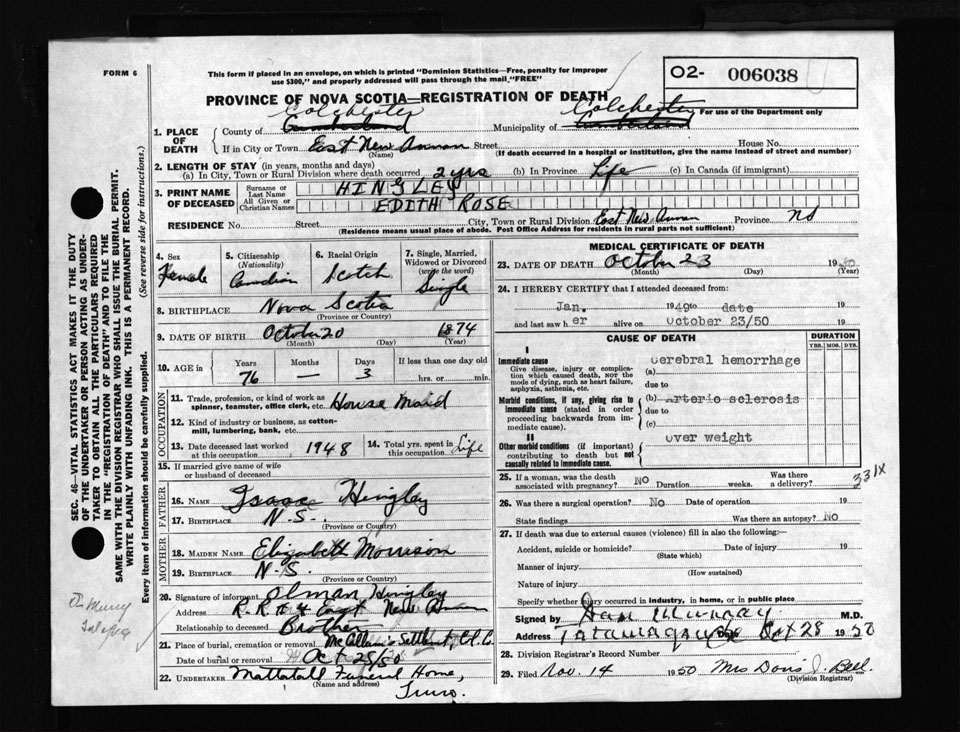 FORM 6
This form if placed in an envelope, on which is printed "Dominion Statistics—Free, penalty for improper
use $300," and properly addressed will pass through the mail "FREE"
O2- 006038
PROVINCE OF NOVA SCOTIA—REGISTRATION OF DEATH
For use of the Department only
Colchester Colchester
1. PLACE OF DEATH { County of Cumberland Municipality of Cumberland
If in City or Town East New Annan Street House No.
(Name) (If death occurred in a hospital or institution, give the name instead of street and number)
2. LENGTH OF STAY (in years, months and days)
(a) In City, Town or Rural Division where death occurred 2 yrs (b) In Province Life (c) In Canada (if immigrant)
3. PRINT NAME OF DECEASED { Surname or Last Name HINGLEY
All Given or Christian Names EDITH ROSE
RESIDENCE No. Street City, Town or Rural Division East New Annan Province NS
(Residence means usual place of abode. Post Office Address for residents in rural parts not sufficient)
4. Sex Female
5. Citizenship (Nationality) Canadian
6. Racial Origin Scotch
7. Single, Married, Widowed or Divorced (write the word) Single
8. BIRTHPLACE Nova Scotia
(Province or Country)
9. DATE OF BIRTH October 20 1874
(Month) (Day) (Year)
10. AGE in Years Months Days If less than one day old
76 — 3 hrs. or min.
OCCUPATION
11. Trade, profession, or kind of work as spinner, teamster, office clerk, etc. House Maid
12. Kind of industry or business, as cotton-mill, lumbering, bank, etc.
13. Date deceased last worked at this occupation 1948
14. Total yrs. spent in this occupation Life
15. If married give name of wife or husband of deceased
FATHER
16. NAME Isaac Hingley
17. BIRTHPLACE N.S.
(Province or Country)
MOTHER
18. MAIDEN NAME Elizabeth Morrison
19. BIRTHPLACE N.S.
(Province or Country)
20. Signature of informant Olman Hingley
Address R.R. # 4 East New Annan
Relationship to deceased Brother
21. Place of burial, cremation or removal
Date of burial or removal Oct 25/50
22. UNDERTAKER Mattatall Funeral Home,
(Name and address) Truro.
MEDICAL CERTIFICATE OF DEATH
23. DATE OF DEATH October 23 1950
(Month) (Day) (Year)
24. I HEREBY CERTIFY that I attended deceased from:
Jan. 1949 to date 19
and last saw her alive on October 23/50 19
CAUSE OF DEATH
DURATION
YRS. MOS. DYS.
I
Immediate cause
Give disease, injury or complication which caused death, NOT the mode of dying, such as heart failure, asphyxia, asthenia, etc.
(a) Cerebral hemorrhage
due to
Morbid conditions, if any, giving rise to immediate cause (stated in order proceeding backwards from immediate cause).
(b) Arterio sclerosis
due to
(c)
II
Other morbid conditions (if important) contributing to death but not causally related to immediate cause.
Over weight
25. If a woman, was the death associated with pregnancy? NO Duration weeks. Was there a delivery?
331X
26. Was there a surgical operation? No Date of operation 19
State findings Was there an autopsy? No
27. If death was due to external causes (violence) fill in also the following:—
Accident, suicide or homicide? Date of injury 19
(State which)
Manner of injury
(How sustained)
Nature of injury
Specify whether injury occurred in industry, in home, or in public place
Signed by Dan Murray M.D.
Address Tatamagouche Oct 28 1950
28. Division Registrar's Record Number
29. Filed Nov. 14 1950 Mrs Doris J. Bell.
(Division Registrar)
SEC. 46—VITAL STATISTICS ACT MAKES IT THE DUTY
OF THE UNDERTAKER OR PERSON ACTING AS UNDERTAKER TO OBTAIN ALL THE PARTICULARS REQUIRED
IN THE "REGISTRATION OF DEATH" AND TO FILE THE
SAME WITH THE DIVISION REGISTRAR WHO SHALL ISSUE THE BURIAL PERMIT.
WRITE PLAINLY WITH UNFADING INK. THIS IS A PERMANENT RECORD.
Every item of information should be carefully supplied. (See reverse side for instructions.)